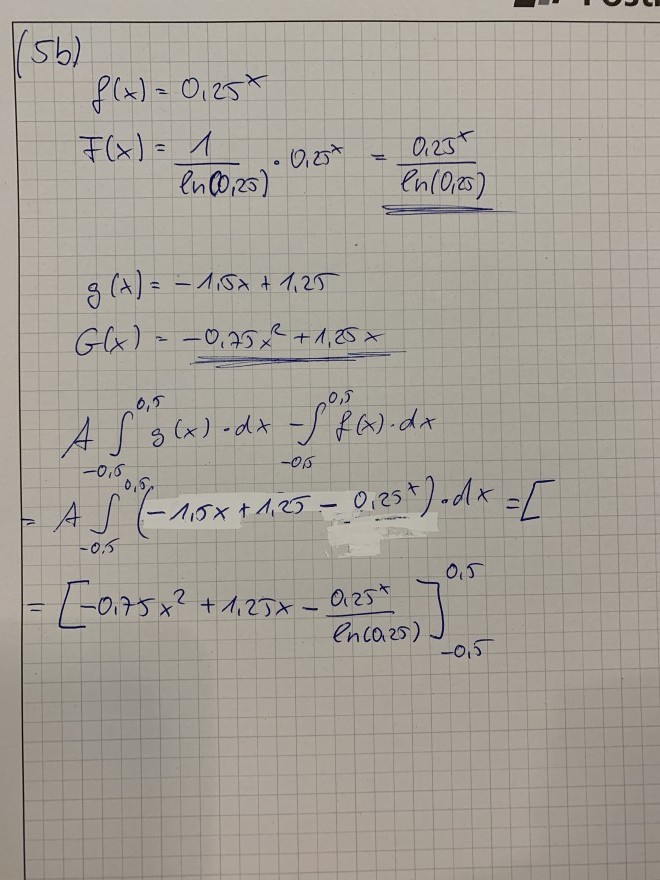 (5b)
f(x) = 0,25^x
F(x) = 1/ln(0,25) · 0,25^x = 0,25^x/ln(0,25)
g(x) = -1,5x + 1,25
G(x) = -0,75x² + 1,25x
A ∫_{-0,5}^{0,5} g(x) · dx - ∫_{-0,5}^{0,5} f(x) · dx
= A ∫_{-0,5}^{0,5} (-1,5x + 1,25 - 0,25^x) · dx = [
= [-0,75x² + 1,25x - 0,25^x/ln(0,25)]_{-0,5}^{0,5}